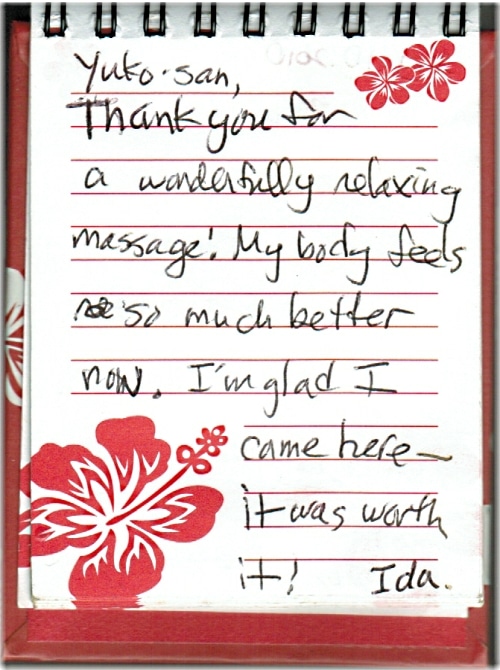 Yuko-san,
Thank you for
a wonderfully relaxing
massage! My body feels
so much better
now. I'm glad I
came here—
it was worth
it! Ida.